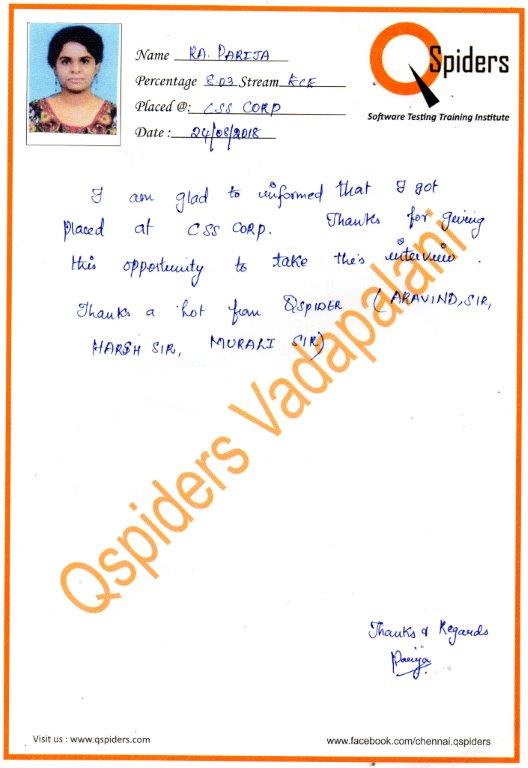 Name RA. PARIJA
Percentage 8.03 Stream ECE
Placed @: CSS CORP
Date : 24/08/2018
QSpiders
Software Testing Training Institute
I am glad to informed that I got
placed at CSS CORP. Thanks for giving
this opportunity to take this interview.
Thanks a lot from QSPIDER (ARAVIND, SIR,
HARSH SIR, MURALI SIR)
Qspiders Vadapalani
Thanks & Regards
Parija
Visit us : www.qspiders.com
www.facebook.com/chennai.qspiders